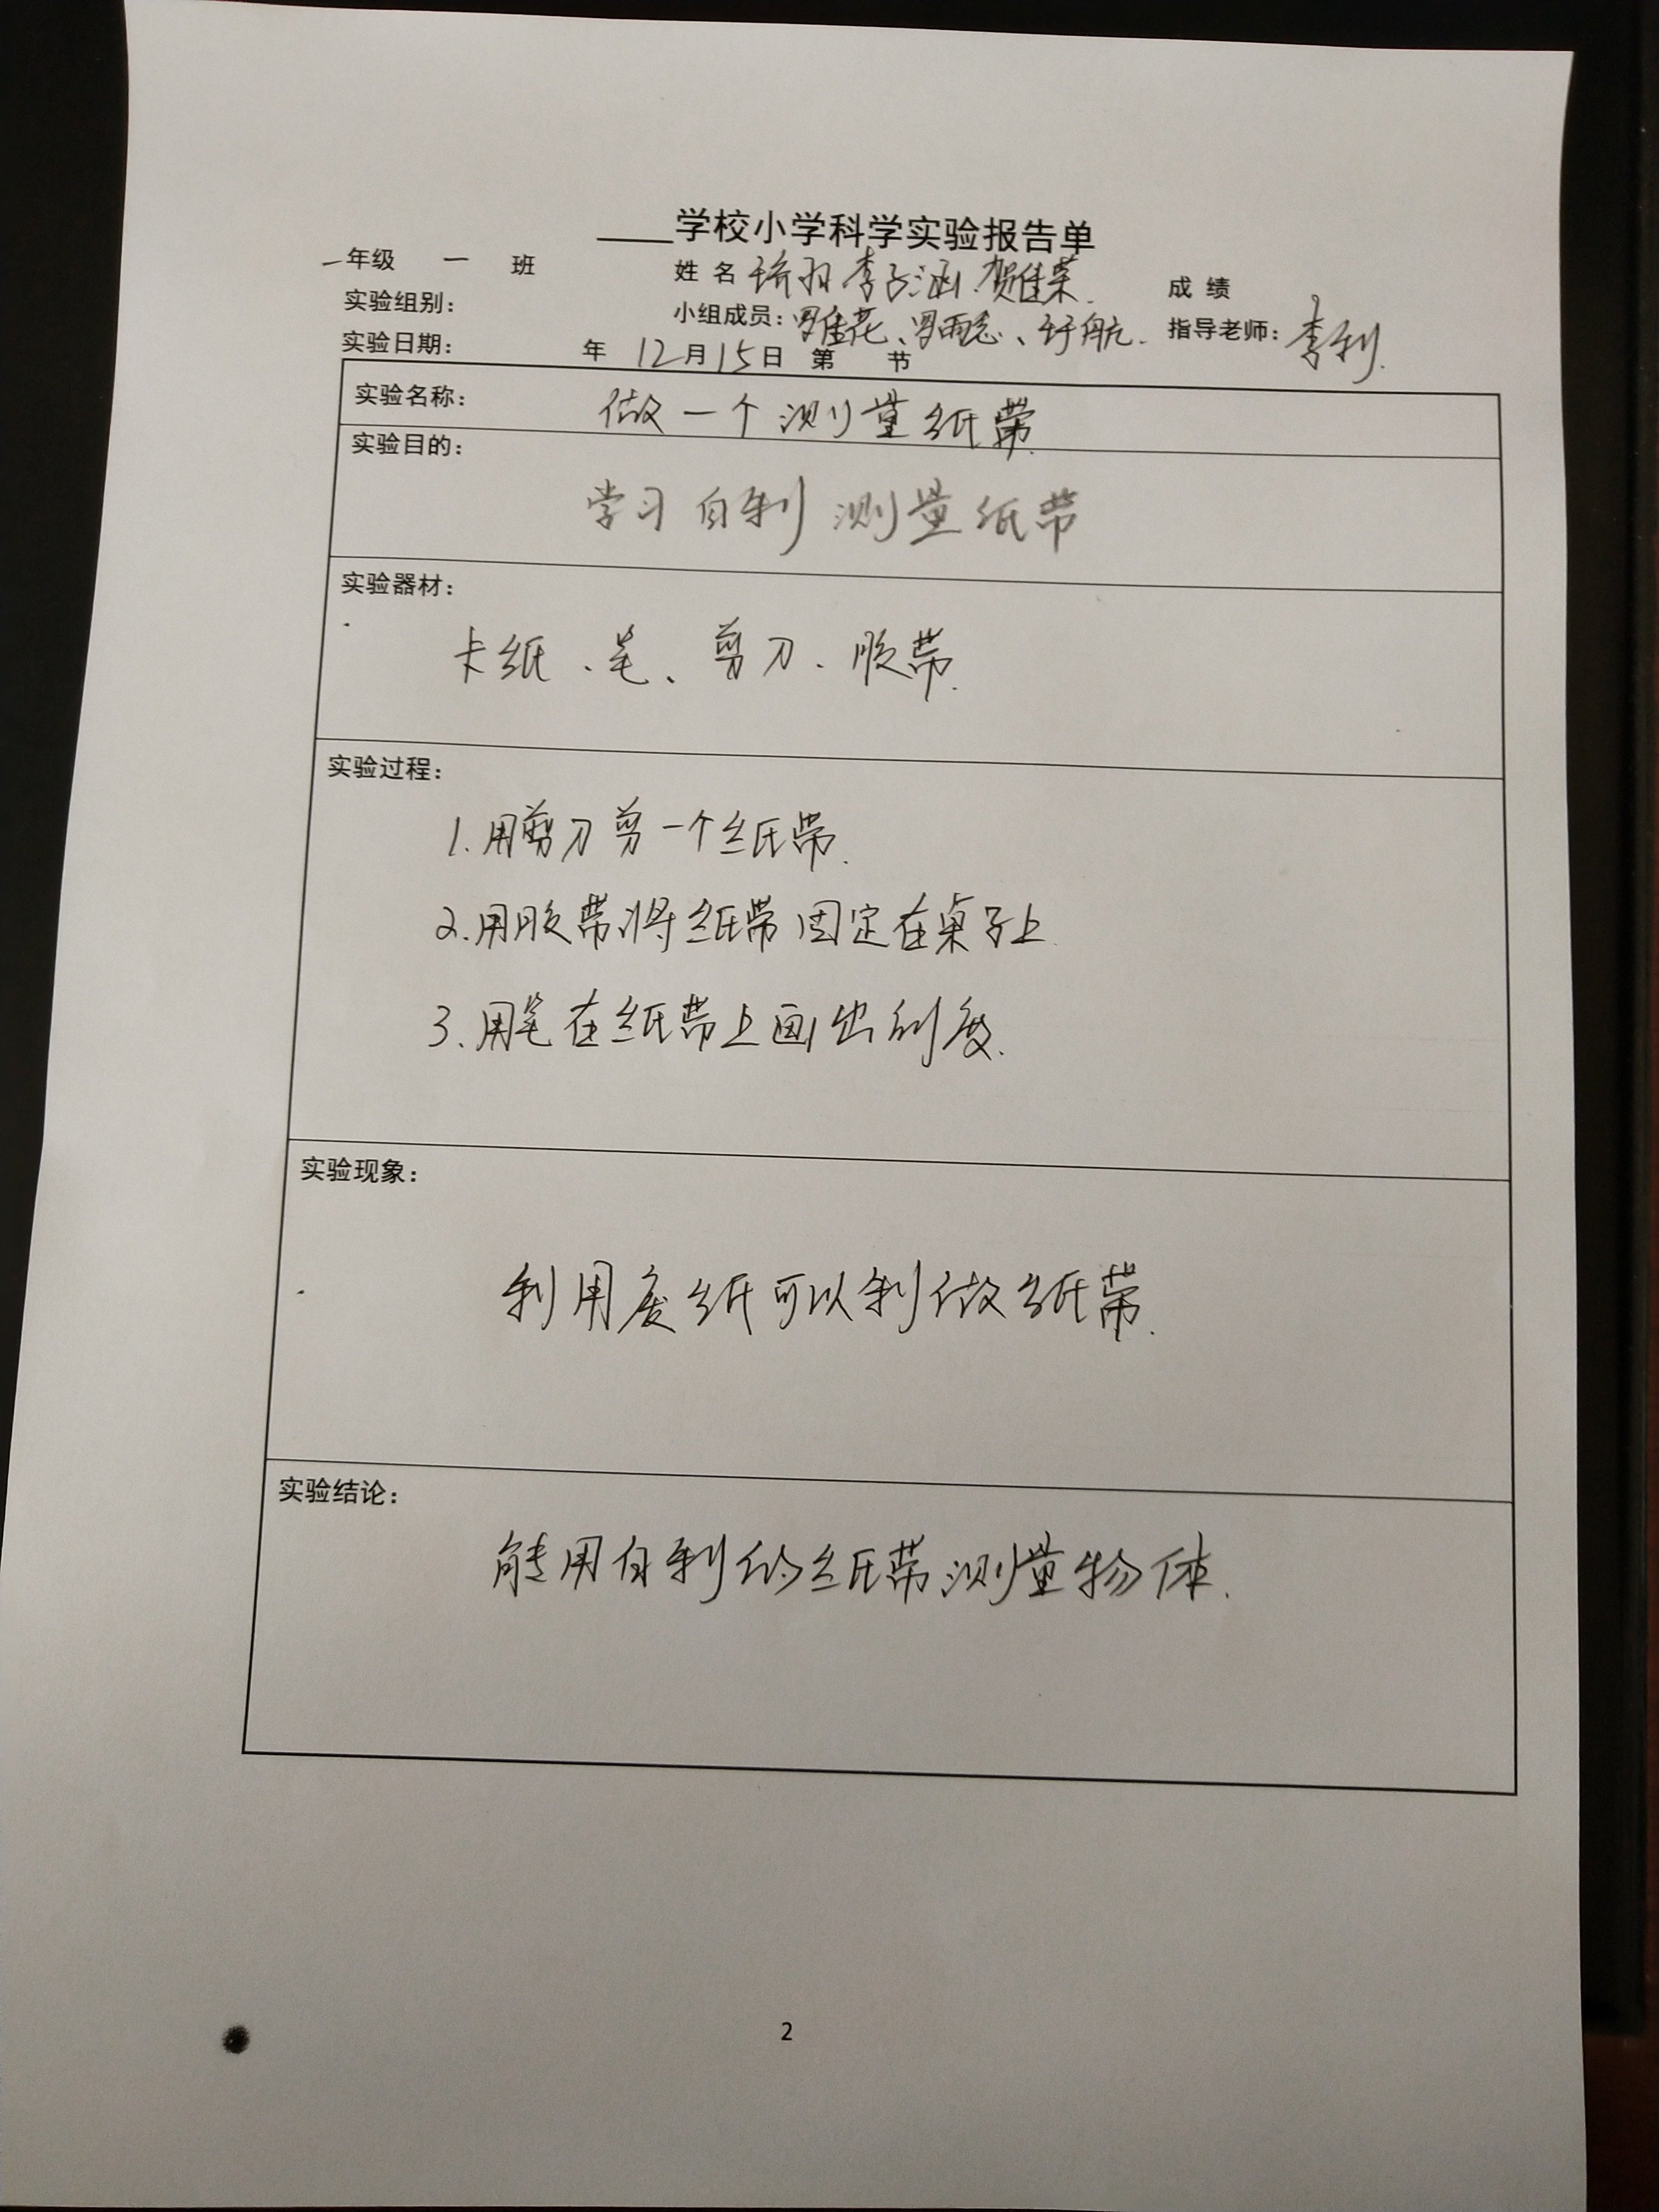 ____学校小学科学实验报告单
一年级 一 班 姓 名 李子涵. 贺佳荣. 成 绩
实验组别: 小组成员: 罗雨 指导老师: 李利.
实验日期: 年 12月15日 第 节
实验名称: 做一个测量纸带.
实验目的:
学习自制测量纸带
实验器材:
卡纸、笔、剪刀、胶带.
实验过程:
1.用剪刀剪一个纸带.
2.用胶带将纸带固定在桌子上.
3.用笔在纸带上画出刻度.
实验现象:
利用废纸可以制做纸带.
实验结论:
能用自制的纸带测量物体.
2